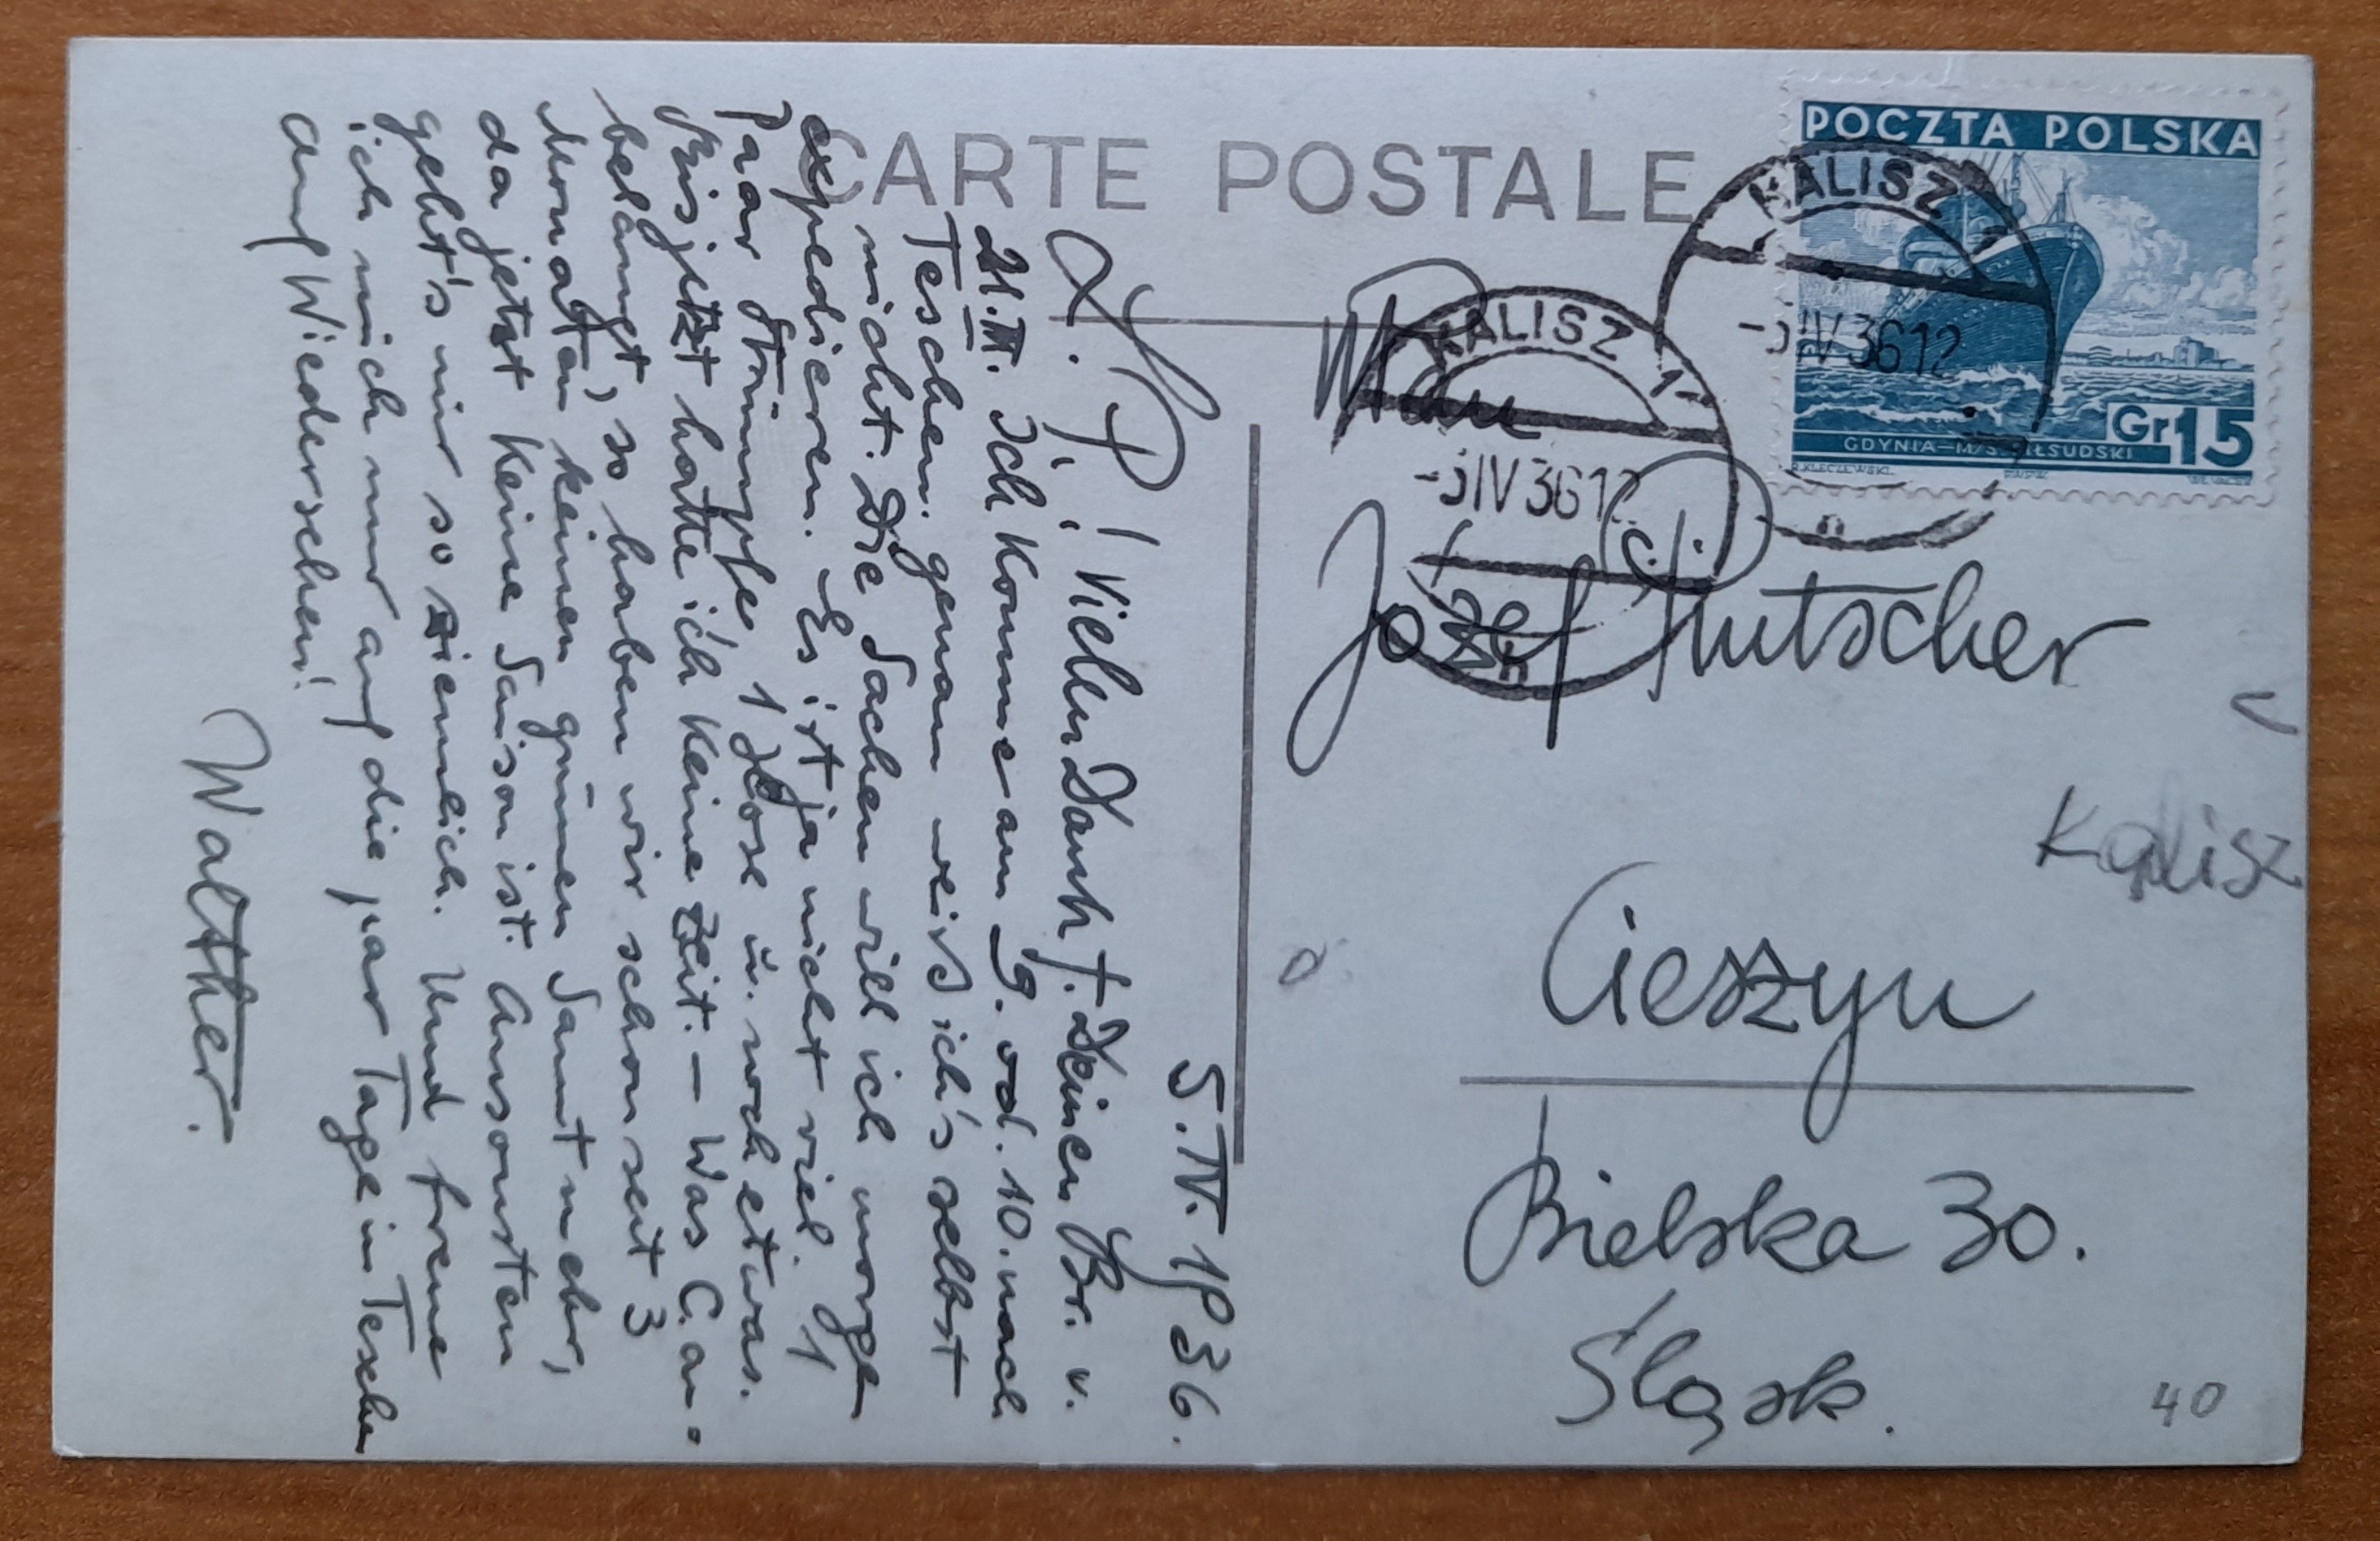 CARTE POSTALE
POCZTA POLSKA
Gr 15
GDYNIA—M/S PIŁSUDSKI
R.KLECZEWSKI
KALISZ 1
-5 IV 36 12
KALISZ 1
-5 IV 36 12
5. IV. 1936.
L. P.! Vielen Dank f. Deinen Br. v.
21. III. Ich komme am 9. od. 10. nach
Teschen. genau weiß ich's selbst
nicht. Die Sachen will ich morgen
expedieren. Es ist ja nicht viel. 1
Paar Strümpfe, 1 Hose u. noch etwas.
Bis jetzt hatte ich keine Zeit. – Was C. an-
belangt, so haben wir schon seit 3
Monaten keinen grünen Samt mehr,
da jetzt keine Saison ist. Ansonsten
geht's mir so ziemlich. Und freue
ich mich nur auf die paar Tage in Teschen
Auf Wiedersehen!
Walther.
Józef
Cieszyn
Bielska 30.
Śląsk.
Kalisz
40